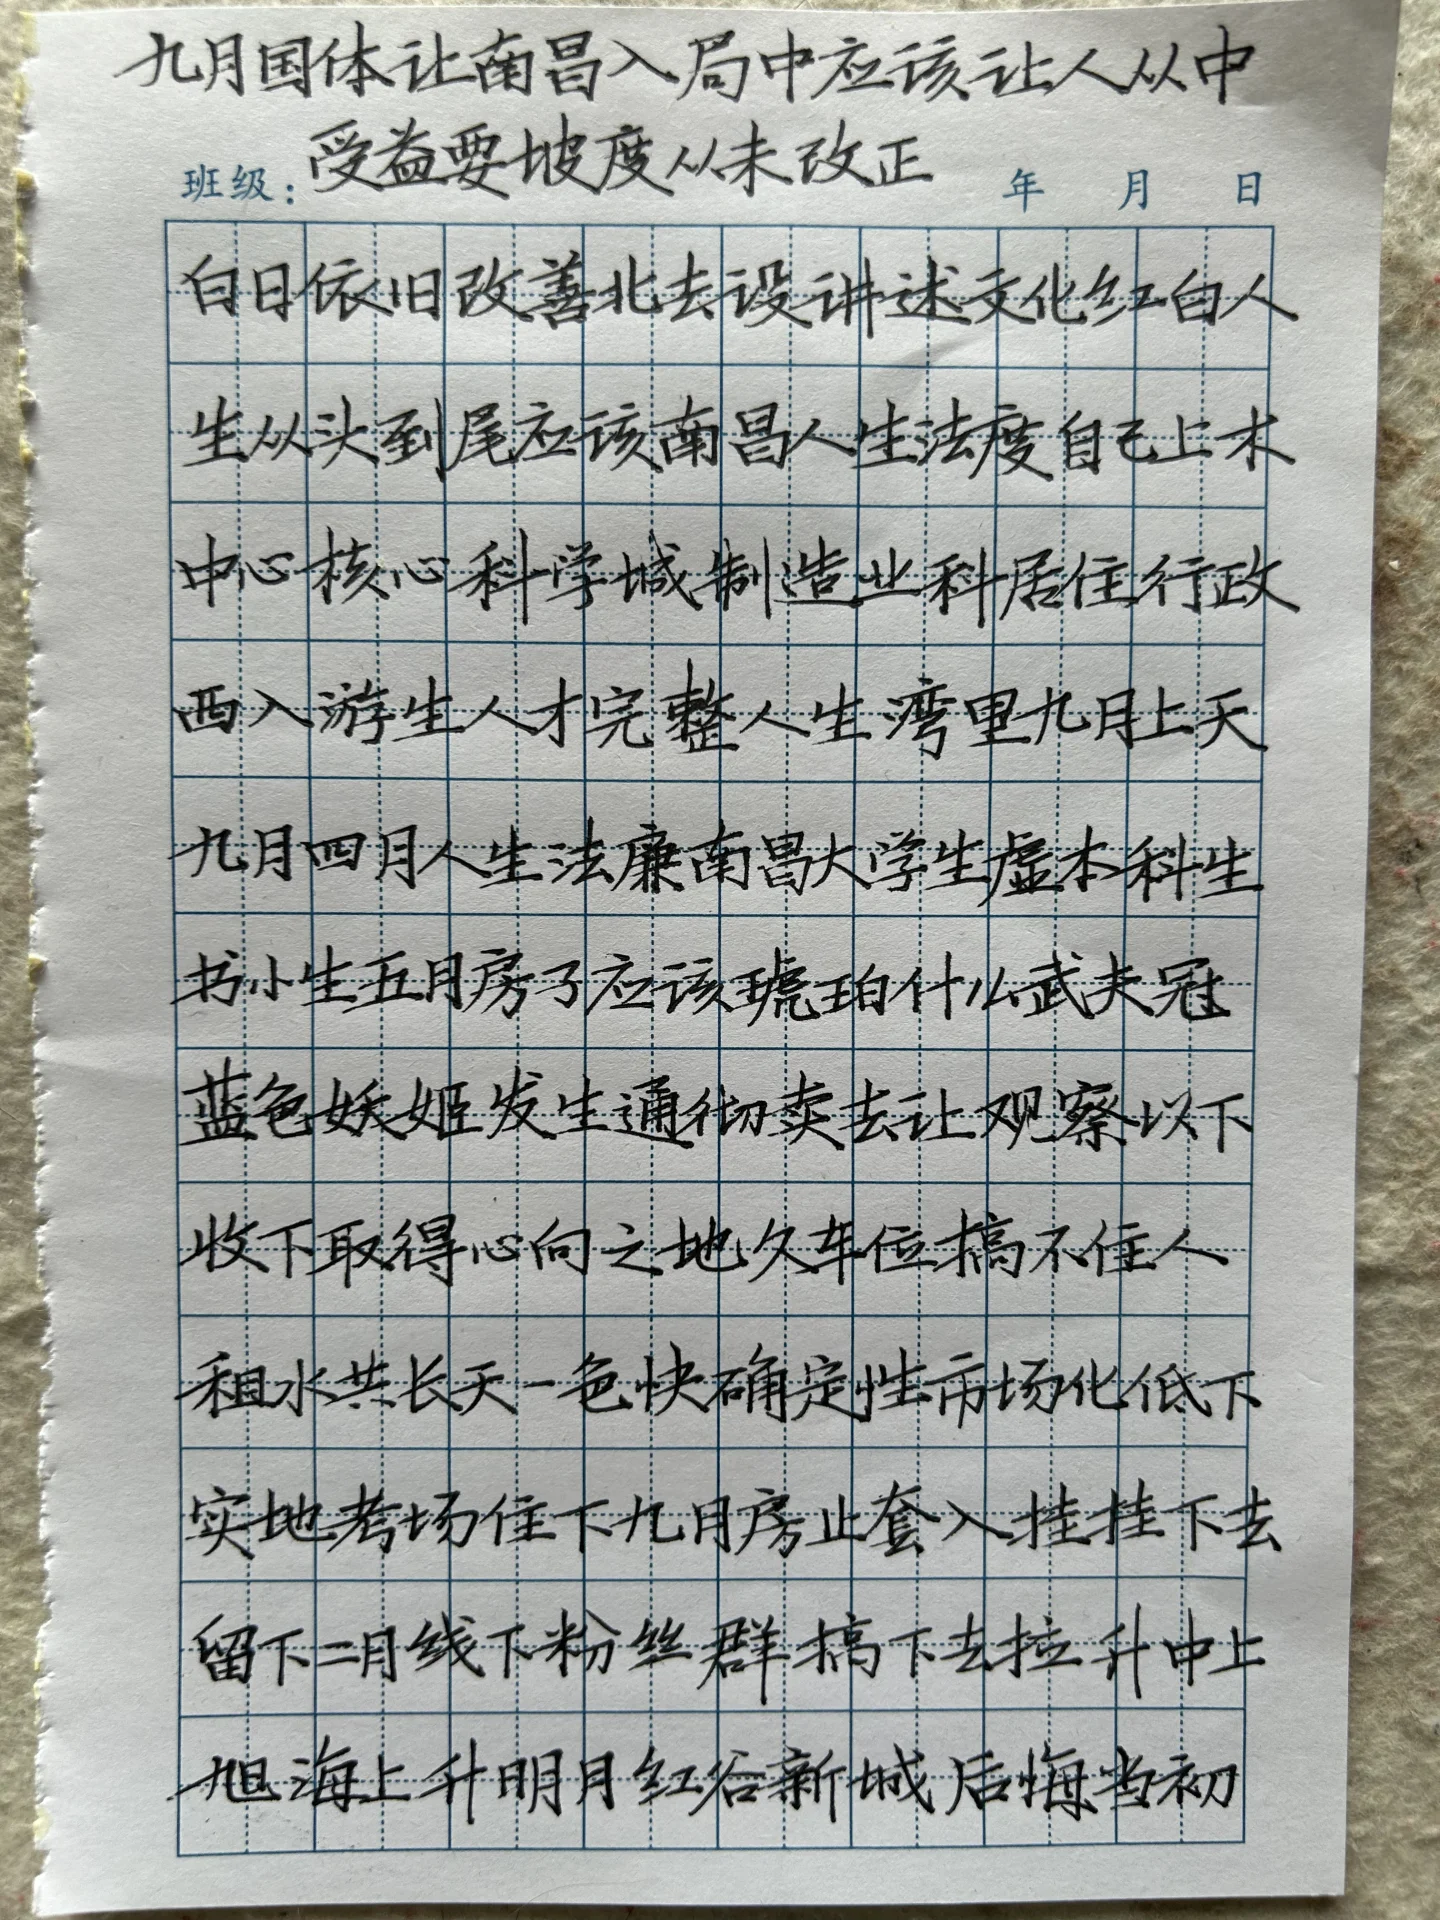 九月国体让南昌入局中应该让人从中
受益要坡度从未改正
班级： 年 月 日
白日依旧改善北去设讲述文化红白人
生从头到尾应该南昌人生法度自己上木
中心核心科学城制造业科居住行政
西入游生人才完整人生湾里九月上天
九月四月人生法廉南昌大学生虚本科生
书小生五月房子应该琥珀什么武夫冠
蓝色妖姬发生通彻卖去让观察以下
收下取得心向之地欠车位搞不住人
租水共长天一色快确定性市场化低下
实地考场住下九月房止套入挂挂下去
留下二月线下粉丝群搞下去拉升中上
旭海上升明月红谷新城后悔当初